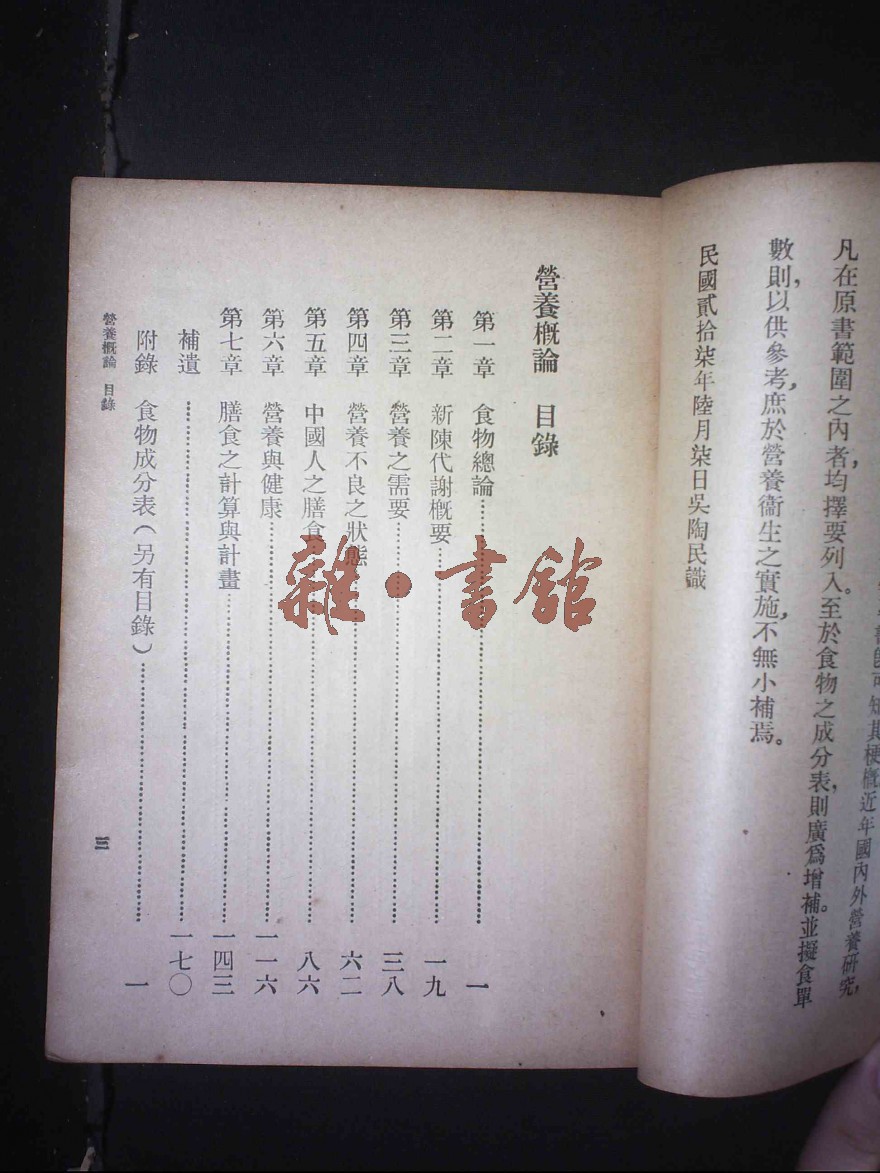 知其梗槪近年國內外營養硏究,
凡在原書範圍之內者,均擇要列入。至於食物之成分表,則廣爲增補並擬食單
數則,以供參考,庶於營養衞生之實施,不無小補焉。
民國貳拾柒年陸月柒日吳陶民識
營養槪論 目錄
第一章 食物總論……一
第二章 新陳代謝槪要……一九
第三章 營養之需要……三八
第四章 營養不良之狀態……六二
第五章 中國人之膳食……八六
第六章 營養與健康……一一六
第七章 膳食之計算與計畫……一四三
補遺……一七〇
附錄 食物成分表(另有目錄)……一
營養槪論 目錄
三
雜·書館